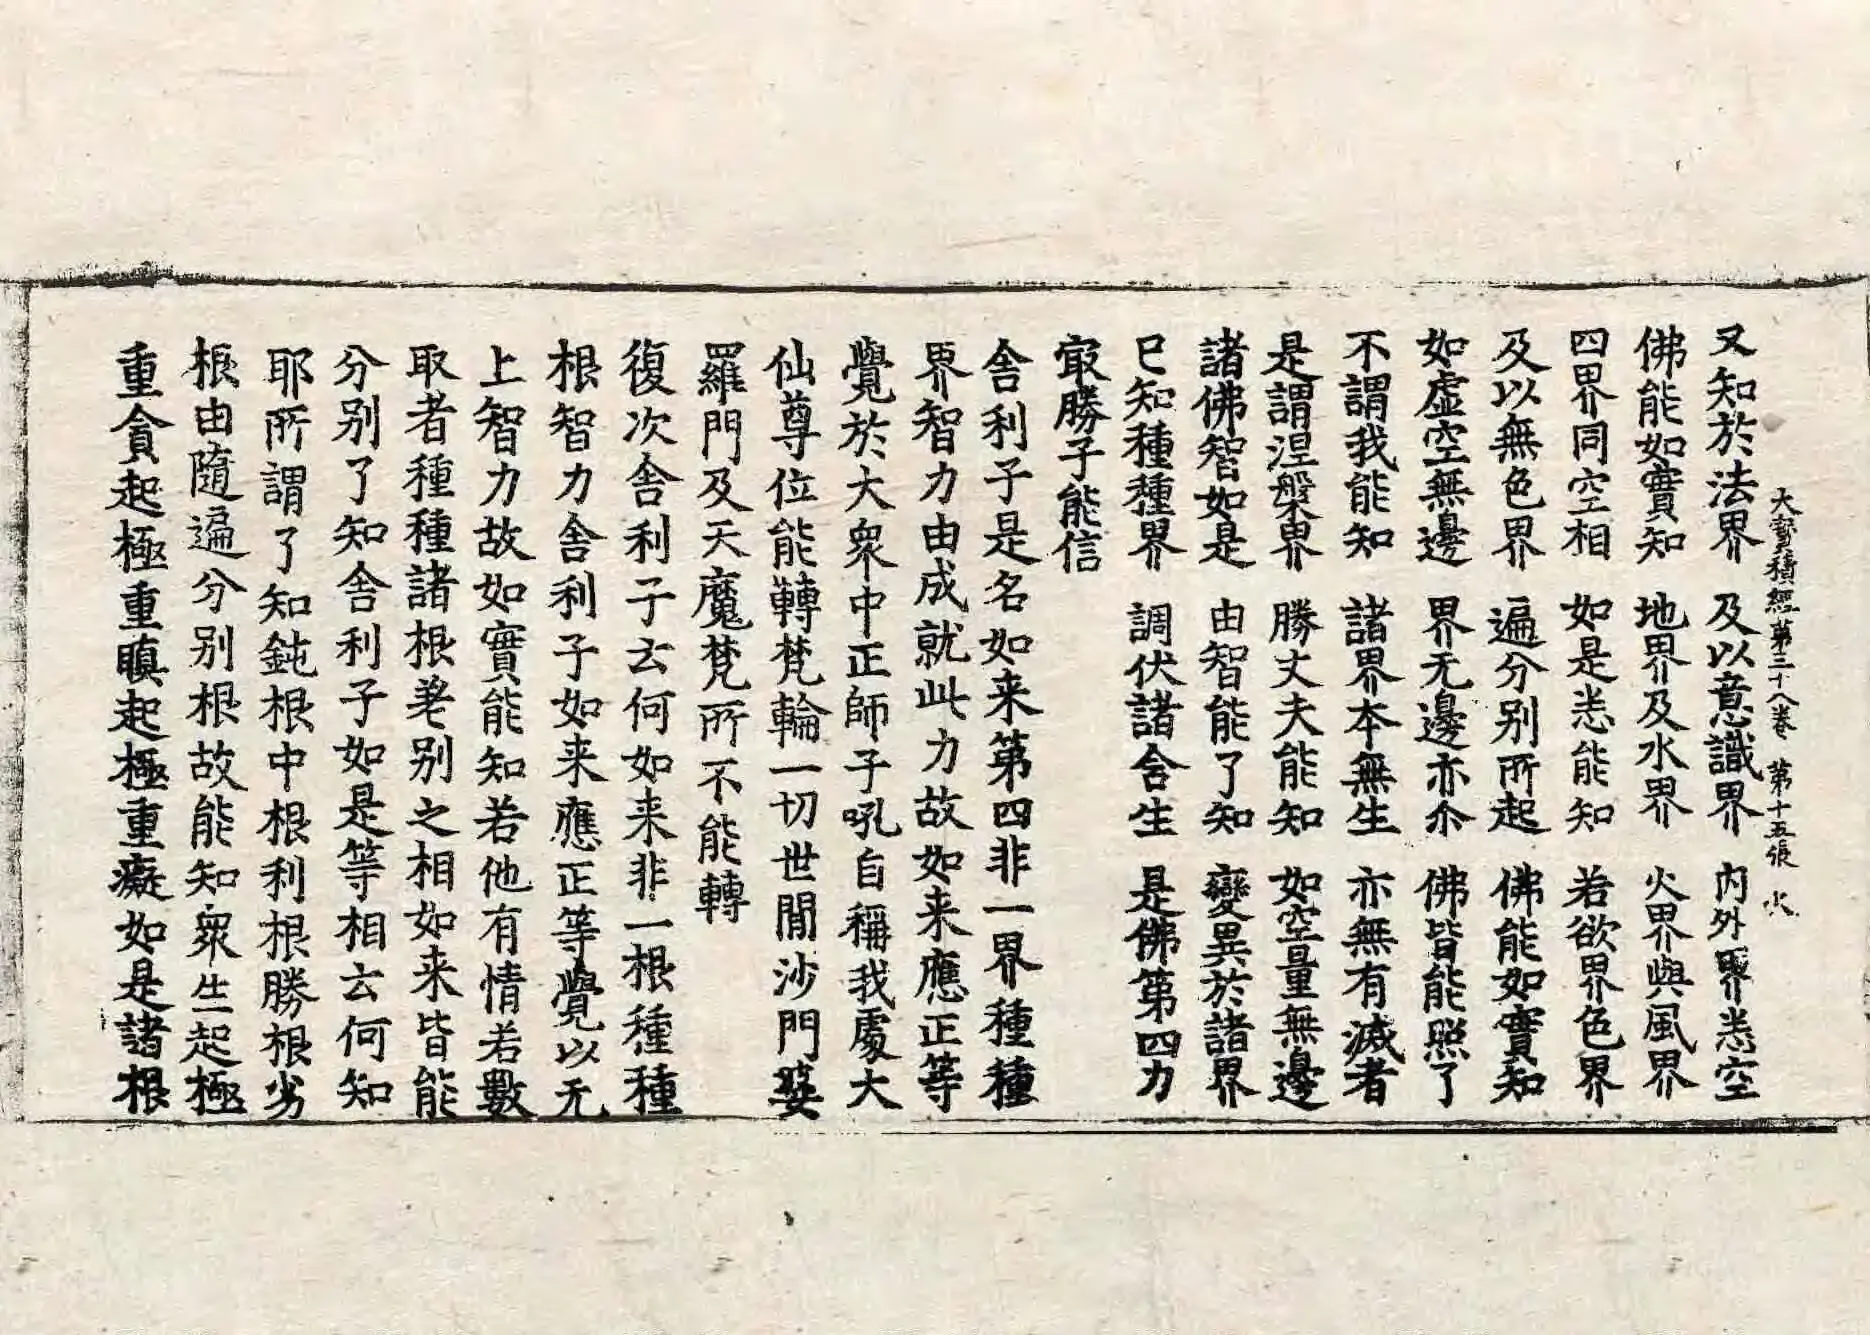 大寶積經第三十八卷 第十五張 火
又知於法界 及以意識界 內外界悉空
佛能如實知 地界及水界 火界與風界
四界同空相 如是悉能知 若欲界色界
及以無色界 遍分別所起 佛能如實知
如虛空無邊 界无邊亦尒 佛皆能照了
不謂我能知 諸界本無生 亦無有滅者
是謂涅槃界 勝丈夫能知 如空量無邊
諸佛智如是 由智能了知 變異於諸界
已知種種界 調伏諸含生 是佛第四力
㝡勝子能信
舍利子是名如来第四非一界種種
界智力由成就此力故如来應正等
覺於大衆中正師子吼自稱我處大
仙尊位能轉梵輪一切世間沙門婆
羅門及天魔梵所不能轉
復次舍利子云何如来非一根種種
根智力舍利子如来應正等覺以无
上智力故如實能知若他有情若數
取者種種諸根差別之相如来皆能
分別了知舍利子如是等相云何知
耶所謂了知鈍根中根利根勝根劣
根由隨遍分別根故能知衆生起極
重貪起極重瞋起極重癡如是諸根